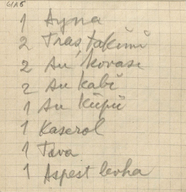 1 Ayna
2 Traş takımı
2 Su kovası
2 Su kabı
1 Su küpü
1 Kaserol
1 Tava
1 Aspest levha